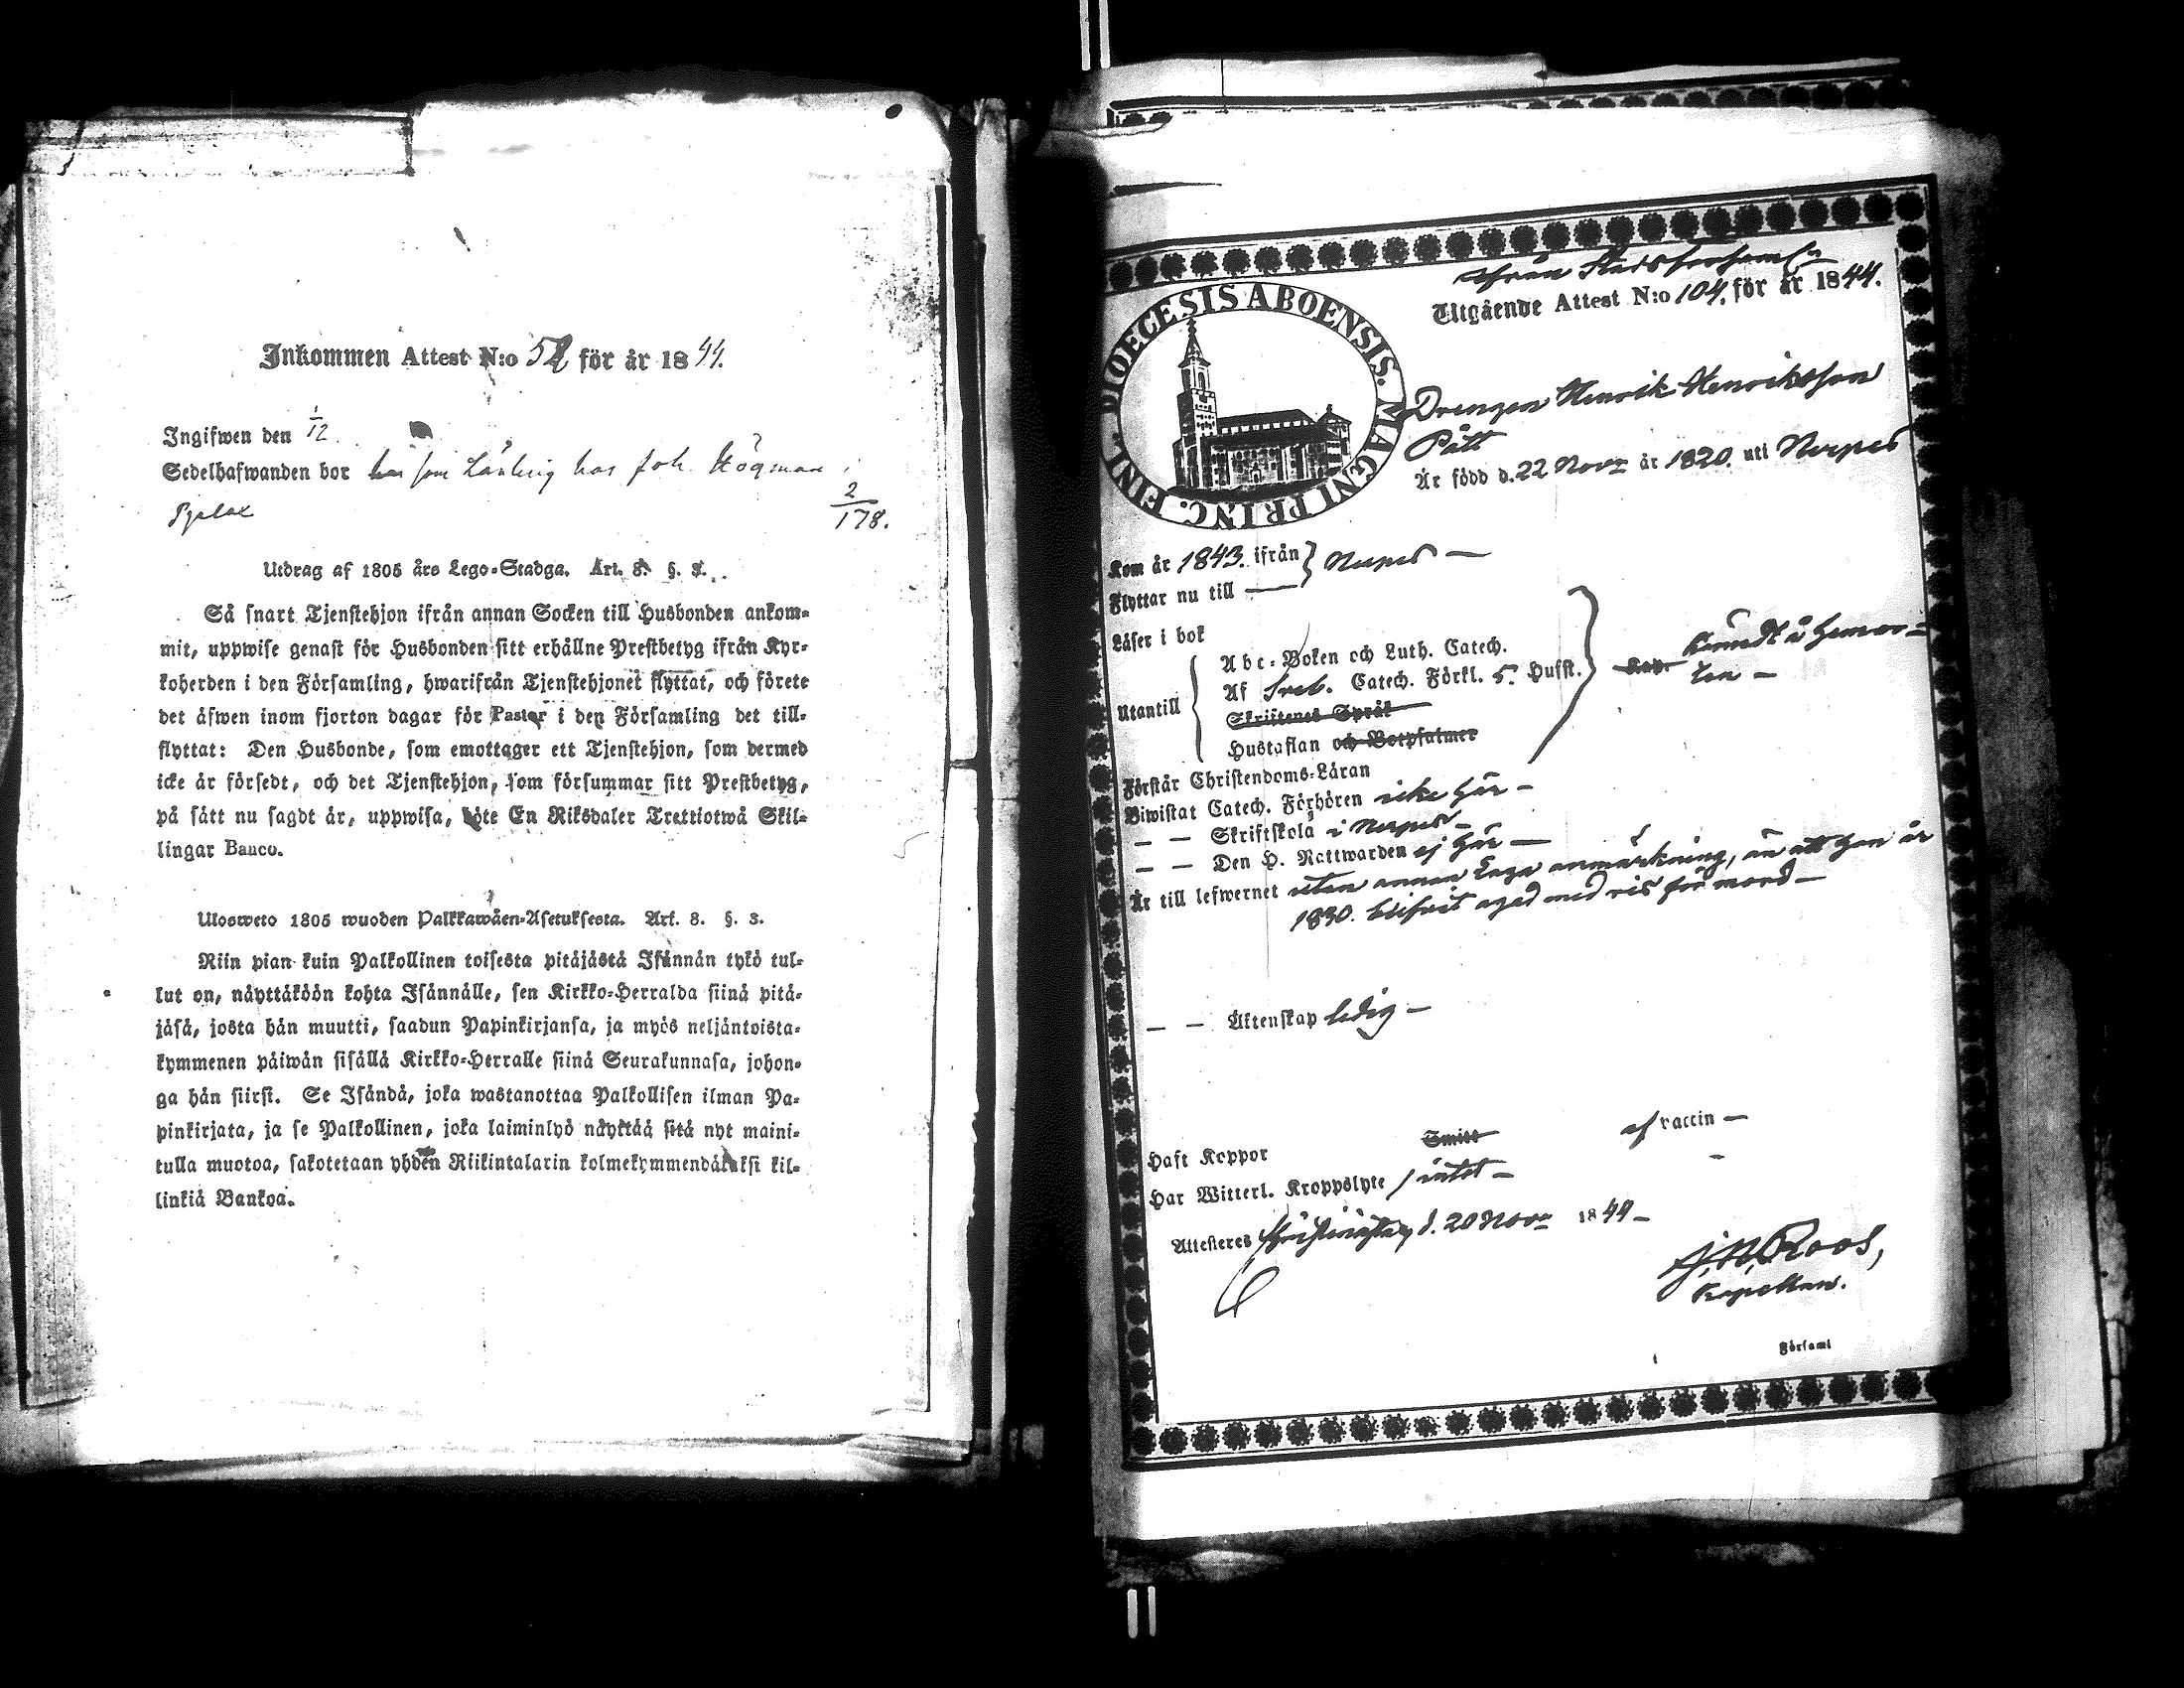 Inkommen Attest N:o 52 för år 1844.
Ingifwen den 1/12
Sedelhafwanden bor här som Lärling hos Joh. Högman i
Pjelax
2/178.
Utdrag af 1805 års Lego-Stadga. Art. 8. §. 3.
Så snart Tjenstehjon ifrån annan Socken till Husbonden ankom-
mit, uppwise genast för Husbonden sitt erhållne Prestbetyg ifrån Kyr-
koherden i den Församling, hwarifrån Tjenstehjonet flyttat, och förete
det äfwen inom fjorton dagar för Pastor i den Församling det till-
flyttat: Den Husbonde, som emottager ett Tjenstehjon, som dermed
icke är försedt, och det Tjenstehjon, som försummar sitt Prestbetyg,
på sätt nu sagdt är, uppwisa, böte En Riksdaler Trettiotwå Skil-
lingar Banco.
Uloswetto 1805 wuoden Palkkawäen-Asetuksesta. Art. 8. §. 3.
Niin pian kuin Palkollinen toisesta pitäjästä Isännän tykö tul-
lut on, näyttäköön kohta Isännälle, sen Kirkko-Herralda siinä pitä-
jäsä, josta hän muutti, saadun Papinkirjansa, ja myös neljäntoista-
kymmenen päiwän sisällä Kirkko-Herralle siinä Seurakunnasa, johon-
ga hän siirsi. Se Isändä, joka wastanottaa Palkollisen ilman Pa-
pinkirjata, ja se Palkollinen, joka laiminlyö näyttää sitä nyt maini-
tulla muotoa, sakotetaan yhden Riikintalarin kolmekymmendäkaksi kil-
linkiä Bankoa.
ifrån Stadsförsaml:n
Utgående Attest N:o 104. för år 1844.
DIOECESIS ABOENSIS. MAGNI PRINC. FINL.
Drengen Henrik Henriksson
Pått
Är född d. 22 Nov:r år 1820. uti Nerpes
Kom år 1843. ifrån } Nerpes —
Flyttar nu till —
Läser i bok
Abc-Boken och Luth. Catech.
Af Sveb. Catech. Förkl. 5. Husst.
Utantill
Skriftenes Språk
Hustaflan och Botpsalmer
Förstår Christendoms-Läran
Biwistat Catech. Förhören icke här —
— — Skriftskola i Nerpes —
— — Den H. Nattwarden ej här —
Är till lefwernet utan annan Laga anmärkning, än att han är
1830. blifvit agad med ris för mord —
— — Äktenskap ledig —
Haft Koppor Smitt af vaccin —
Har Witterl. Kroppslyte intet —
Attesteres Christinæstad d. 20 Nov:r 1844 —
J. N. Roos,
Kapellan.
Församl